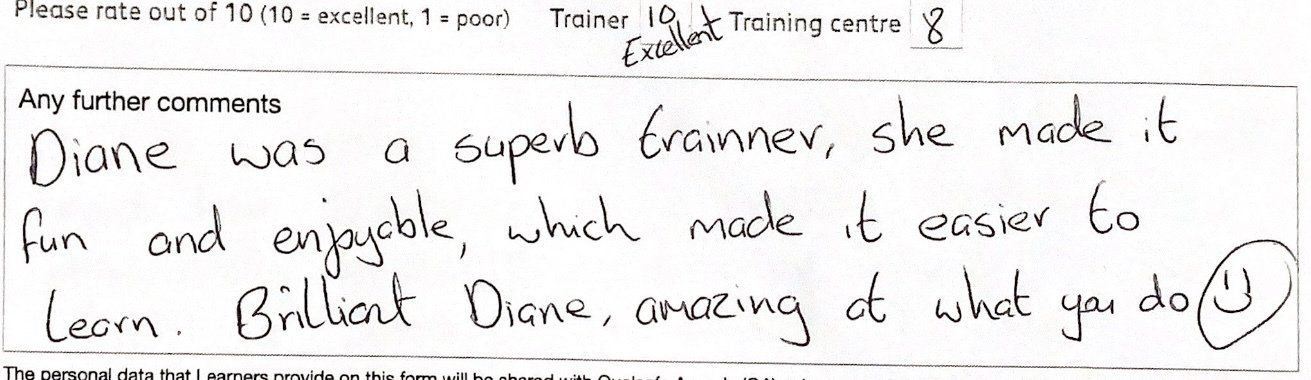 Please rate out of 10 (10 = excellent, 1 = poor) Trainer 10 Training centre 8
Excellent
Any further comments
Diane was a superb trainner, she made it
fun and enjoyable, which made it easier to
learn. Brilliant Diane, amazing at what you do
The personal data that Learners provide on this form will be shared with